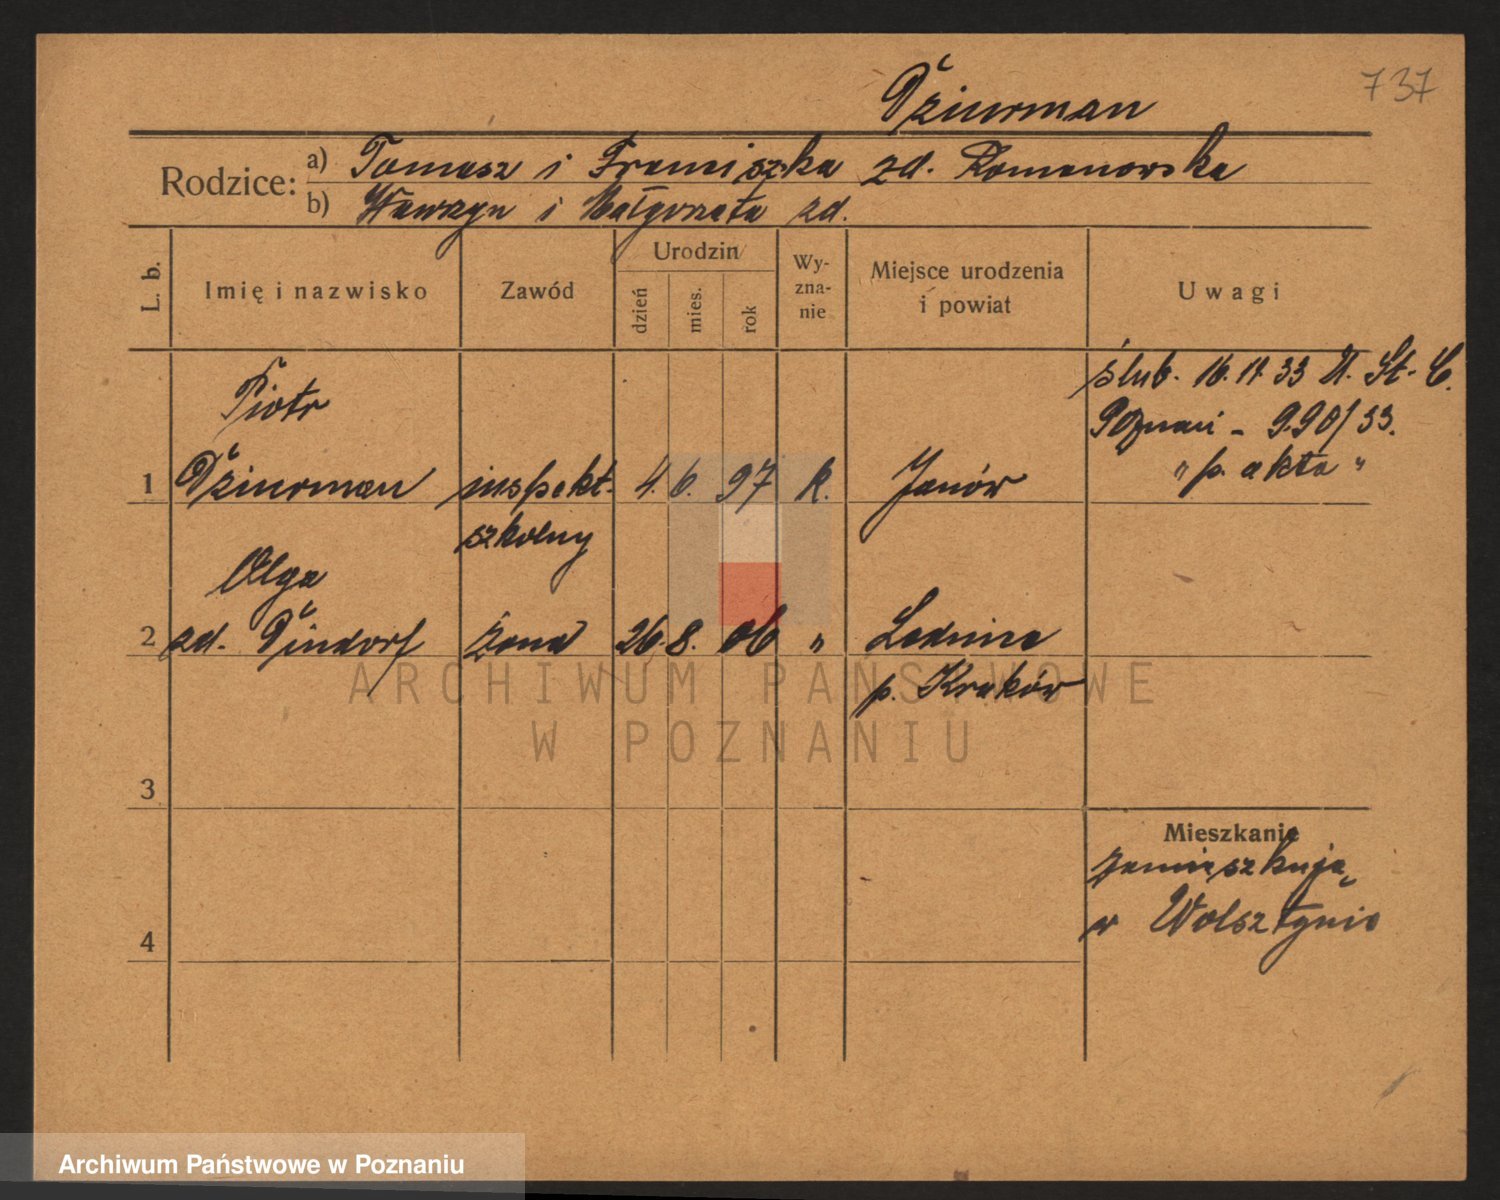 737
Dziurman
Rodzice: a) Tomasz i Franciszka zd. Romanowska
b) Wawrzyn i Małgorzata zd.
L. b.
Imię i nazwisko
Zawód
Urodzin
dzień
mies.
rok
Wy-
zna-
nie
Miejsce urodzenia
i powiat
Uwagi
ślub. 16.11.33 U. St. C.
Poznań - 990/33.
„ p. akta "
Piotr
1 Dziurman inspekt. 4. 6. 97 k. Janów
szkolny
Olga
2 zd. Pindorf żona 26. 8. 06 " Lednica
p. Kraków
3
4
Mieszkanie
zamieszkują
w Wolsztynie
ARCHIWUM PAŃSTWOWE
W POZNANIU
Archiwum Państwowe w Poznaniu